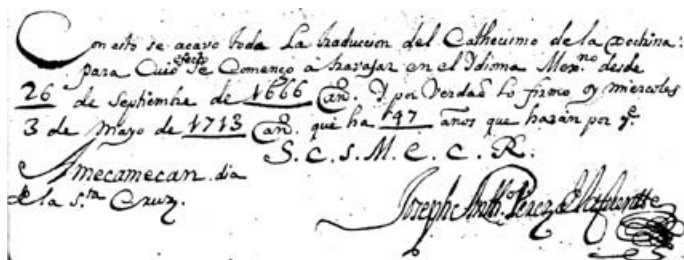 Con esto se acavo toda La traduccion del Cathecismo de la Doctrina:
para Cuio efecto se Començo â travajar en el Idioma Mex.no desde
26 de Septiembre de 1666 añ. Y por Verdad lo firmo oy miercoles
3 de Mayo de 1713 añ. que ha 47 años que hazan por
S. C. S. M. E. C. R.
Amecamecan dia
de la S.ta Cruz.
Joseph Antt.o Perez de la Fuentte